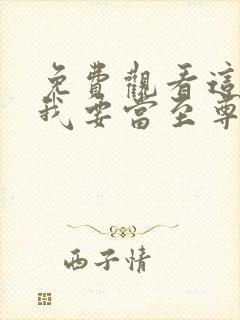 免費觀看這
我要當至尊
西子情